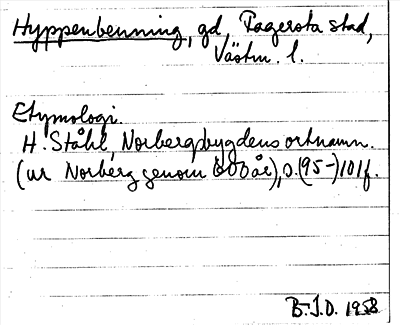 Hyppenbenning, gd, Fagersta stad,
Västm. l.
Etymologi.
H. Ståhl, Norbergsbygdens ortnamn.
(ur Norberg genom 600 år), s. (95-)101f.
B-I.D. 1958